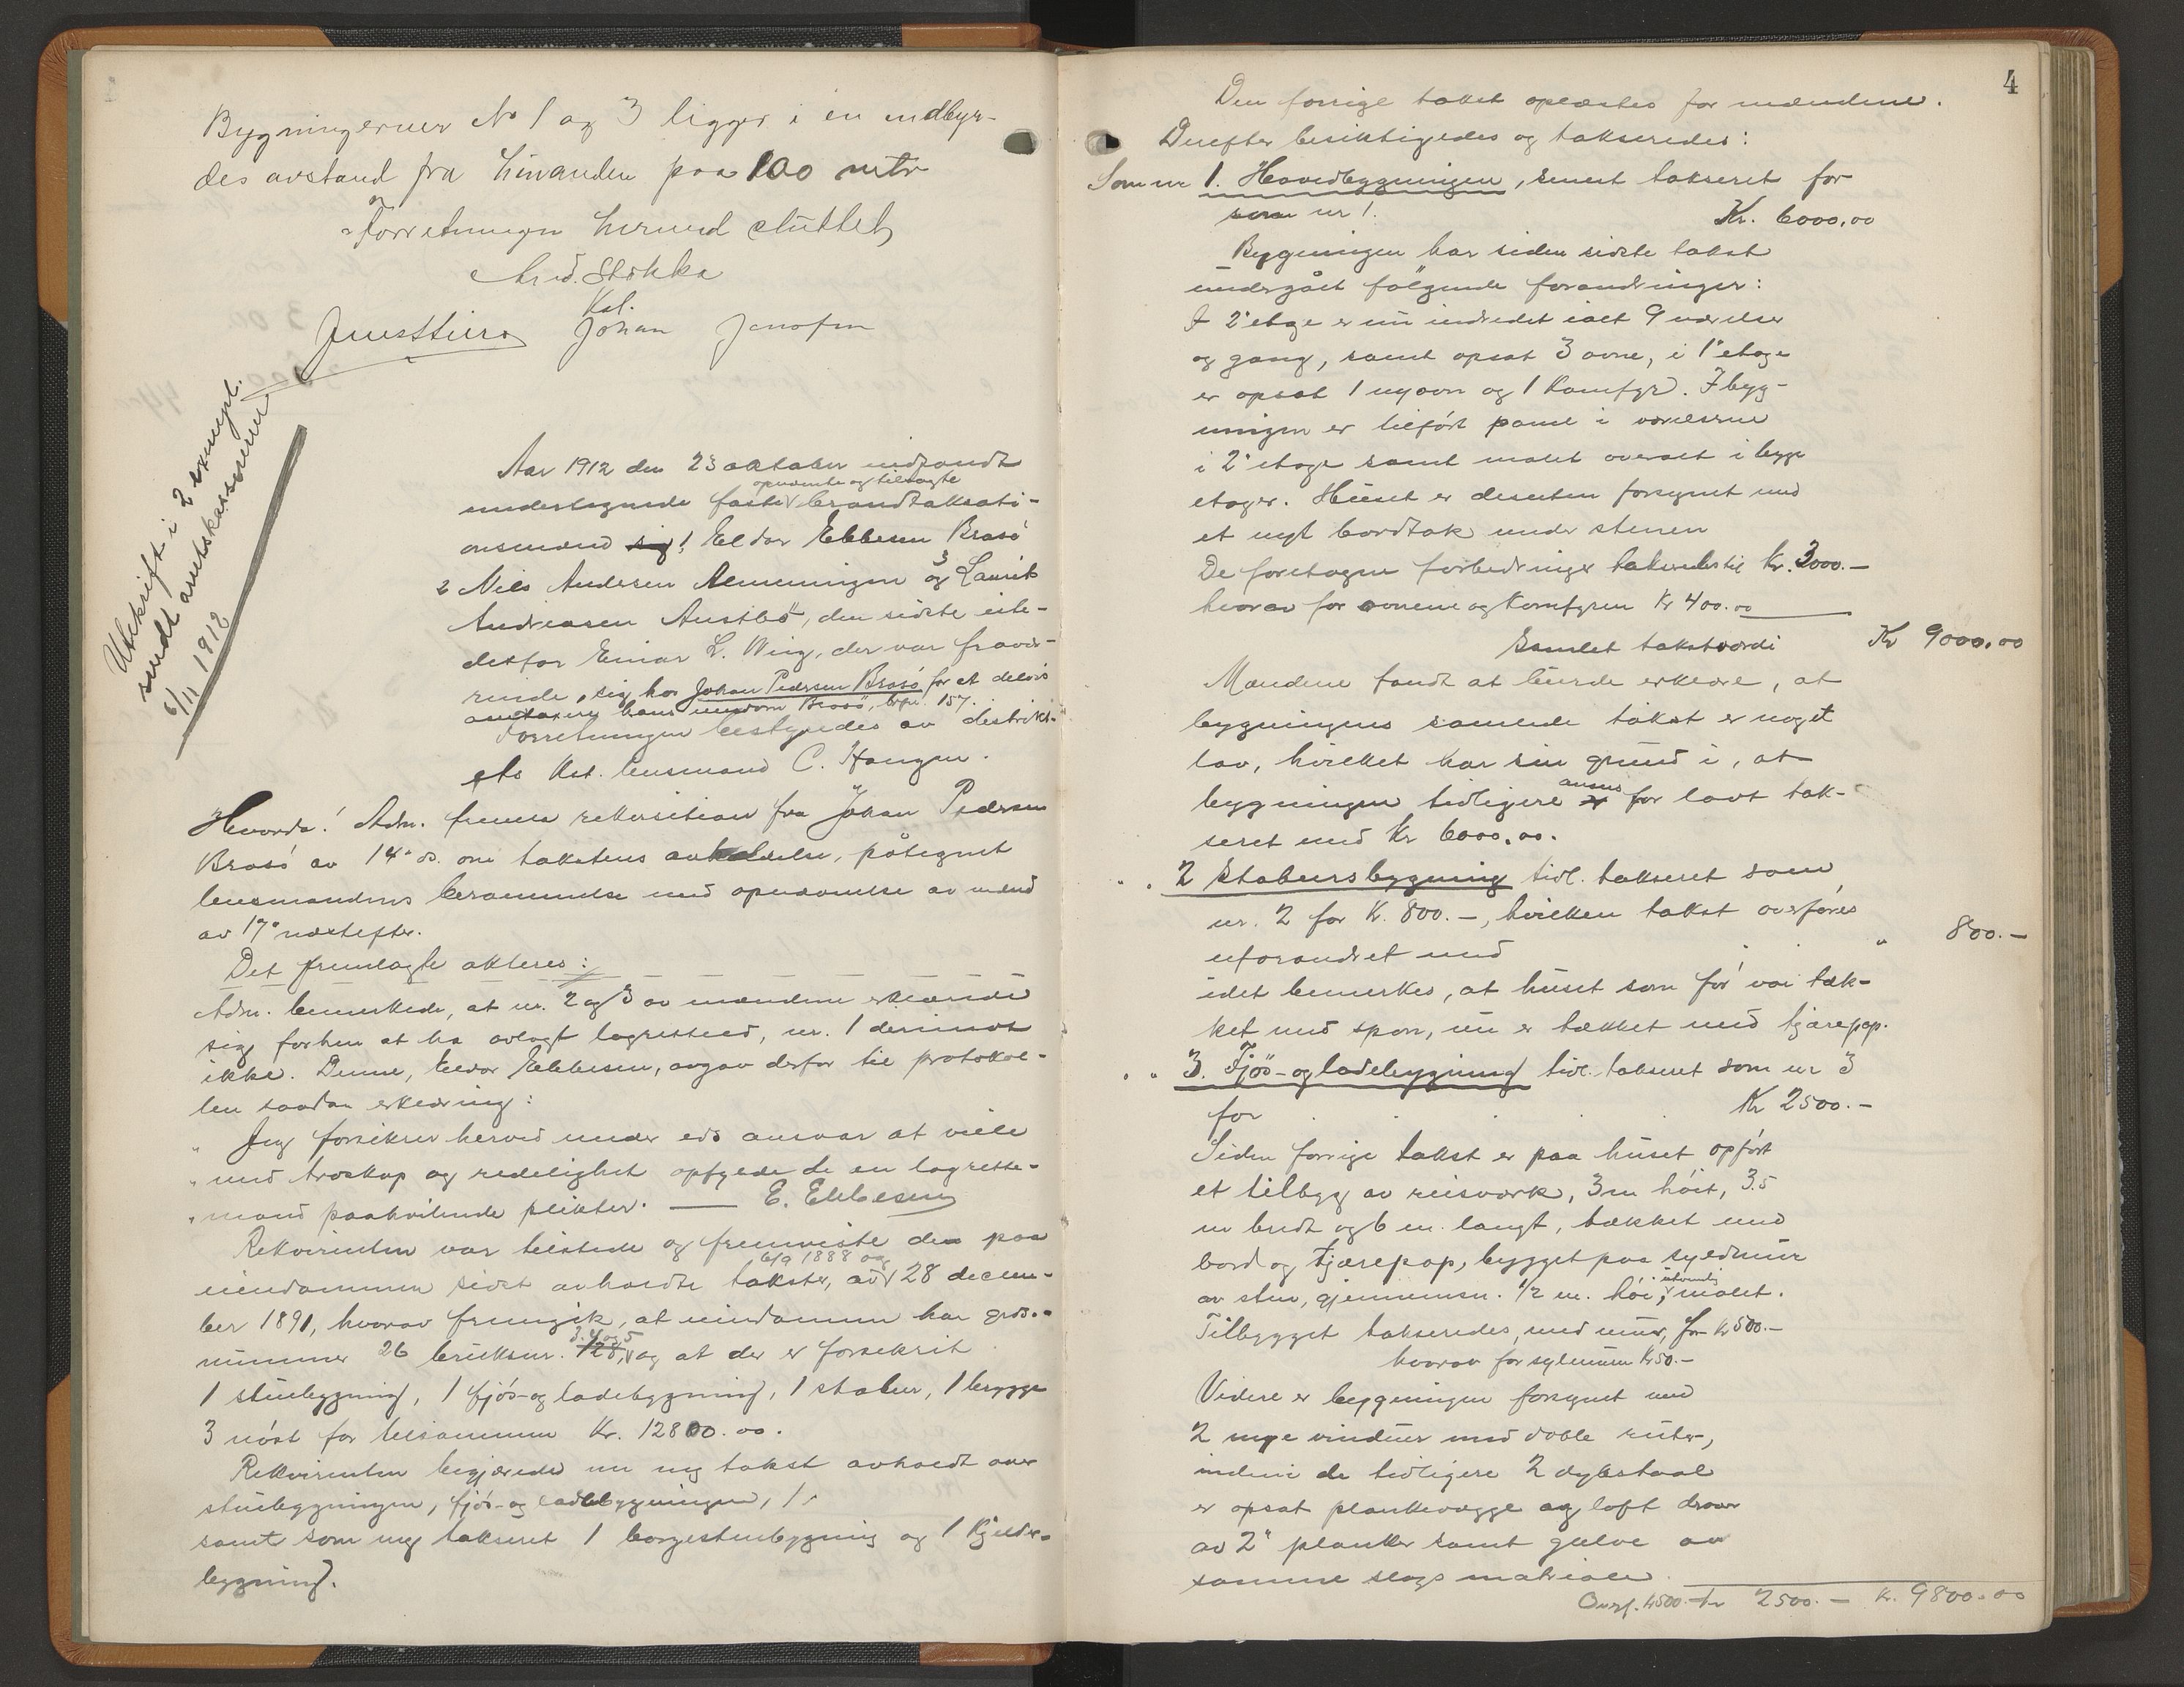 Bygningerner No 1 og 3 ligger i en indbyr-
des avstand fra hinanden paa 100 metr
Forretningen hermed sluttet
Arnd. Stokka
Kst.
Johan Jonassen
Utskrift i 2 exempl.
sendt amtskassereren
6/11 1912
Aar 1912 den 23 oktober indfandt
opnævnte og tilsagte
undertegnede faste brandtaksati-
onsmænd sig: 1 Eldor Ebbesen Brasö
2 Nils Andersen Almenningen og 3 Laurits
Andreasen Austbö, den sidste iste-
detfor Einar L. Wing, der var fravæ-
rende, sig hos Johan Pedersen Brasö for at delvis
omtaxere hans eiendom Brasö, bpr. 157.
Forretningen bestyredes av distrikt-
ets kst. lensmand C. Haugen.
Hvorda! Adm. frem rekvisition fra Johan Pedersen
Brasö av 14de ds. om takstens avholdelse, påtegnet
lensmandens berammelse med opnævnelse av mænd
av 17de næstefter.
Det fremlagte akteres:
Adm. bemerkede, at nr. 2 og 3 av mændene erklærede
sig forhen at ha avlagt lagretteed, nr. 1 derimot
ikke. Denne, Eldor Ebbesen, avgav derfor til protokol-
len saadan erklæring:
" Jeg forsikrer herved under eds ansvar at ville
" med troskap og redelighet opfylde de en lagrette-
" mand paahvilende plikter. — E. Ebbesen
Rekvirenten var tilstede og fremviste den paa
6/9 1888 og
eiendommen sidst avholdte takster, av 28 decem-
ber 1891, hvorav fremgik, at eiendommen har grds.-
3.4 og 5
nummer 26 bruksnr. 128, og at der er forsikrit
1 stuebygning, 1 fjös- og ladebygning, 1 stabur, 1 brygge
3 nöst for tilsammen Kr. 12800.00.
Rekvirenten begjærede nu ny takst avholdt over
stuebygningen, fjös- og ladebygningen,
samt som ny takseret 1 borgestuebygning og 1 Kjelder-
bygning.
4
Den forrige takst oplæstes for mændene.
Derefter besiktigedes og takseredes:
Som nr 1. Hovedbygningen, senest takseret for
som nr 1. Kr. 6000,00
Bygningen har siden sidste takst
undergået fölgende forandringer:
I 2den etage er nu indredet ialt 9 værelser
og gang, samt opsat 3 ovne, i 1ste etage
er opsat 1 ny ovn og 1 Komfyr. I byg-
ningen er tilfört panel i værelserne
i 2den etage samt malet overalt i begge
etager. Huset er desuten forsynet med
et nyt bordtak under stenen
De foretagne forbedringer takseredes til Kr. 3000.—
hvorav for ovnene og Komfyren Kr 400.00
Samlet takstværdi Kr 9000.00
Mændene fandt at burde erklære, at
bygningens samlede takst er noget
lav, hvilket har sin grund i, at
anses
bygningen tidligere er for lavt tak-
seret med Kr 6000.00.
" " 2 Stabursbygning tidl. takseret som
nr. 2 for Kr. 800.—, hvilken takst overföres
uforandret med " 800.—
idet bemerkes, at huset som för var tæk-
ket med spon, nu er tækket med tjærepap.
" " 3. Fjös- og ladebygning tidl. takseret som nr 3
for Kr 2500.—
Siden forrige takst er paa huset opfört
et tilbyg av reisværk, 3 m höit, 3.5
m bredt og 6 m. langt, tækket med
bord og tjærepap, bygget paa syldmur
utvendig
av sten, gjennemsn. 1/2 m. höi, malet.
Tilbygget takseredes, med mur, for Kr 500.—
hvorav for sylmuren Kr 50.—
Videre er bygningen forsynet med
2 nye vinduer med doble ruter,
indeni de tidligere 2 dyrstald
er opsat plankevægge og loft derover
av 2" planker samt gulve av
samme slags materialer.
Overf. Kr 500.— Kr 2500.— Kr. 9800.00